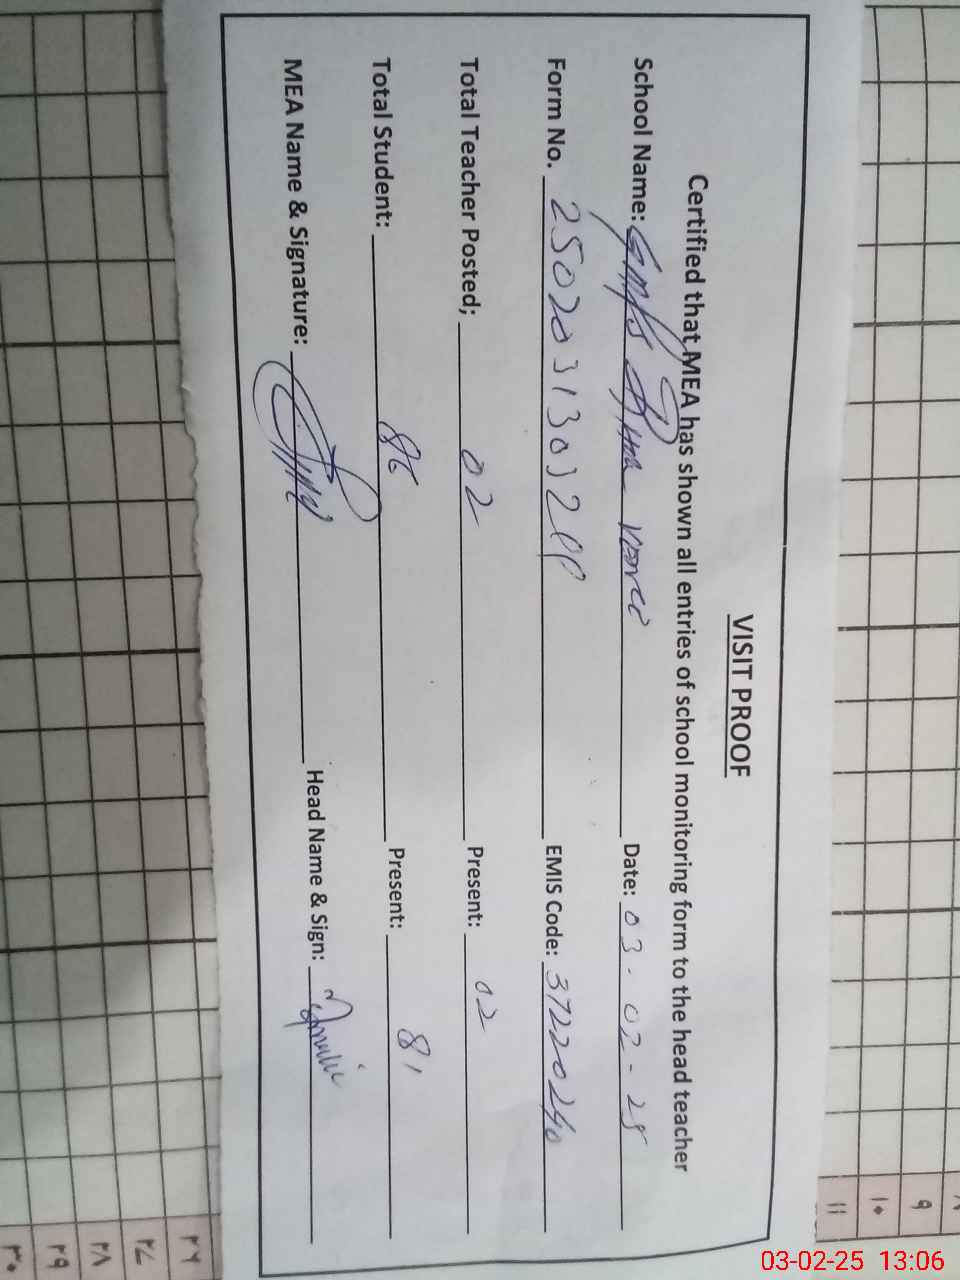 VISIT PROOF
Certified that MEA has shown all entries of school monitoring form to the head teacher
School Name: GMPS Date: 03-02-25
Form No. EMIS Code: 37220240
Total Teacher Posted; 02 Present: 02
Total Student: 86 Present: 81
MEA Name & Signature: Head Name & Sign:
٩
١٠
١١
٢٦
٢٧
٢٨
٢٩
٣٠
03-02-25 13:06